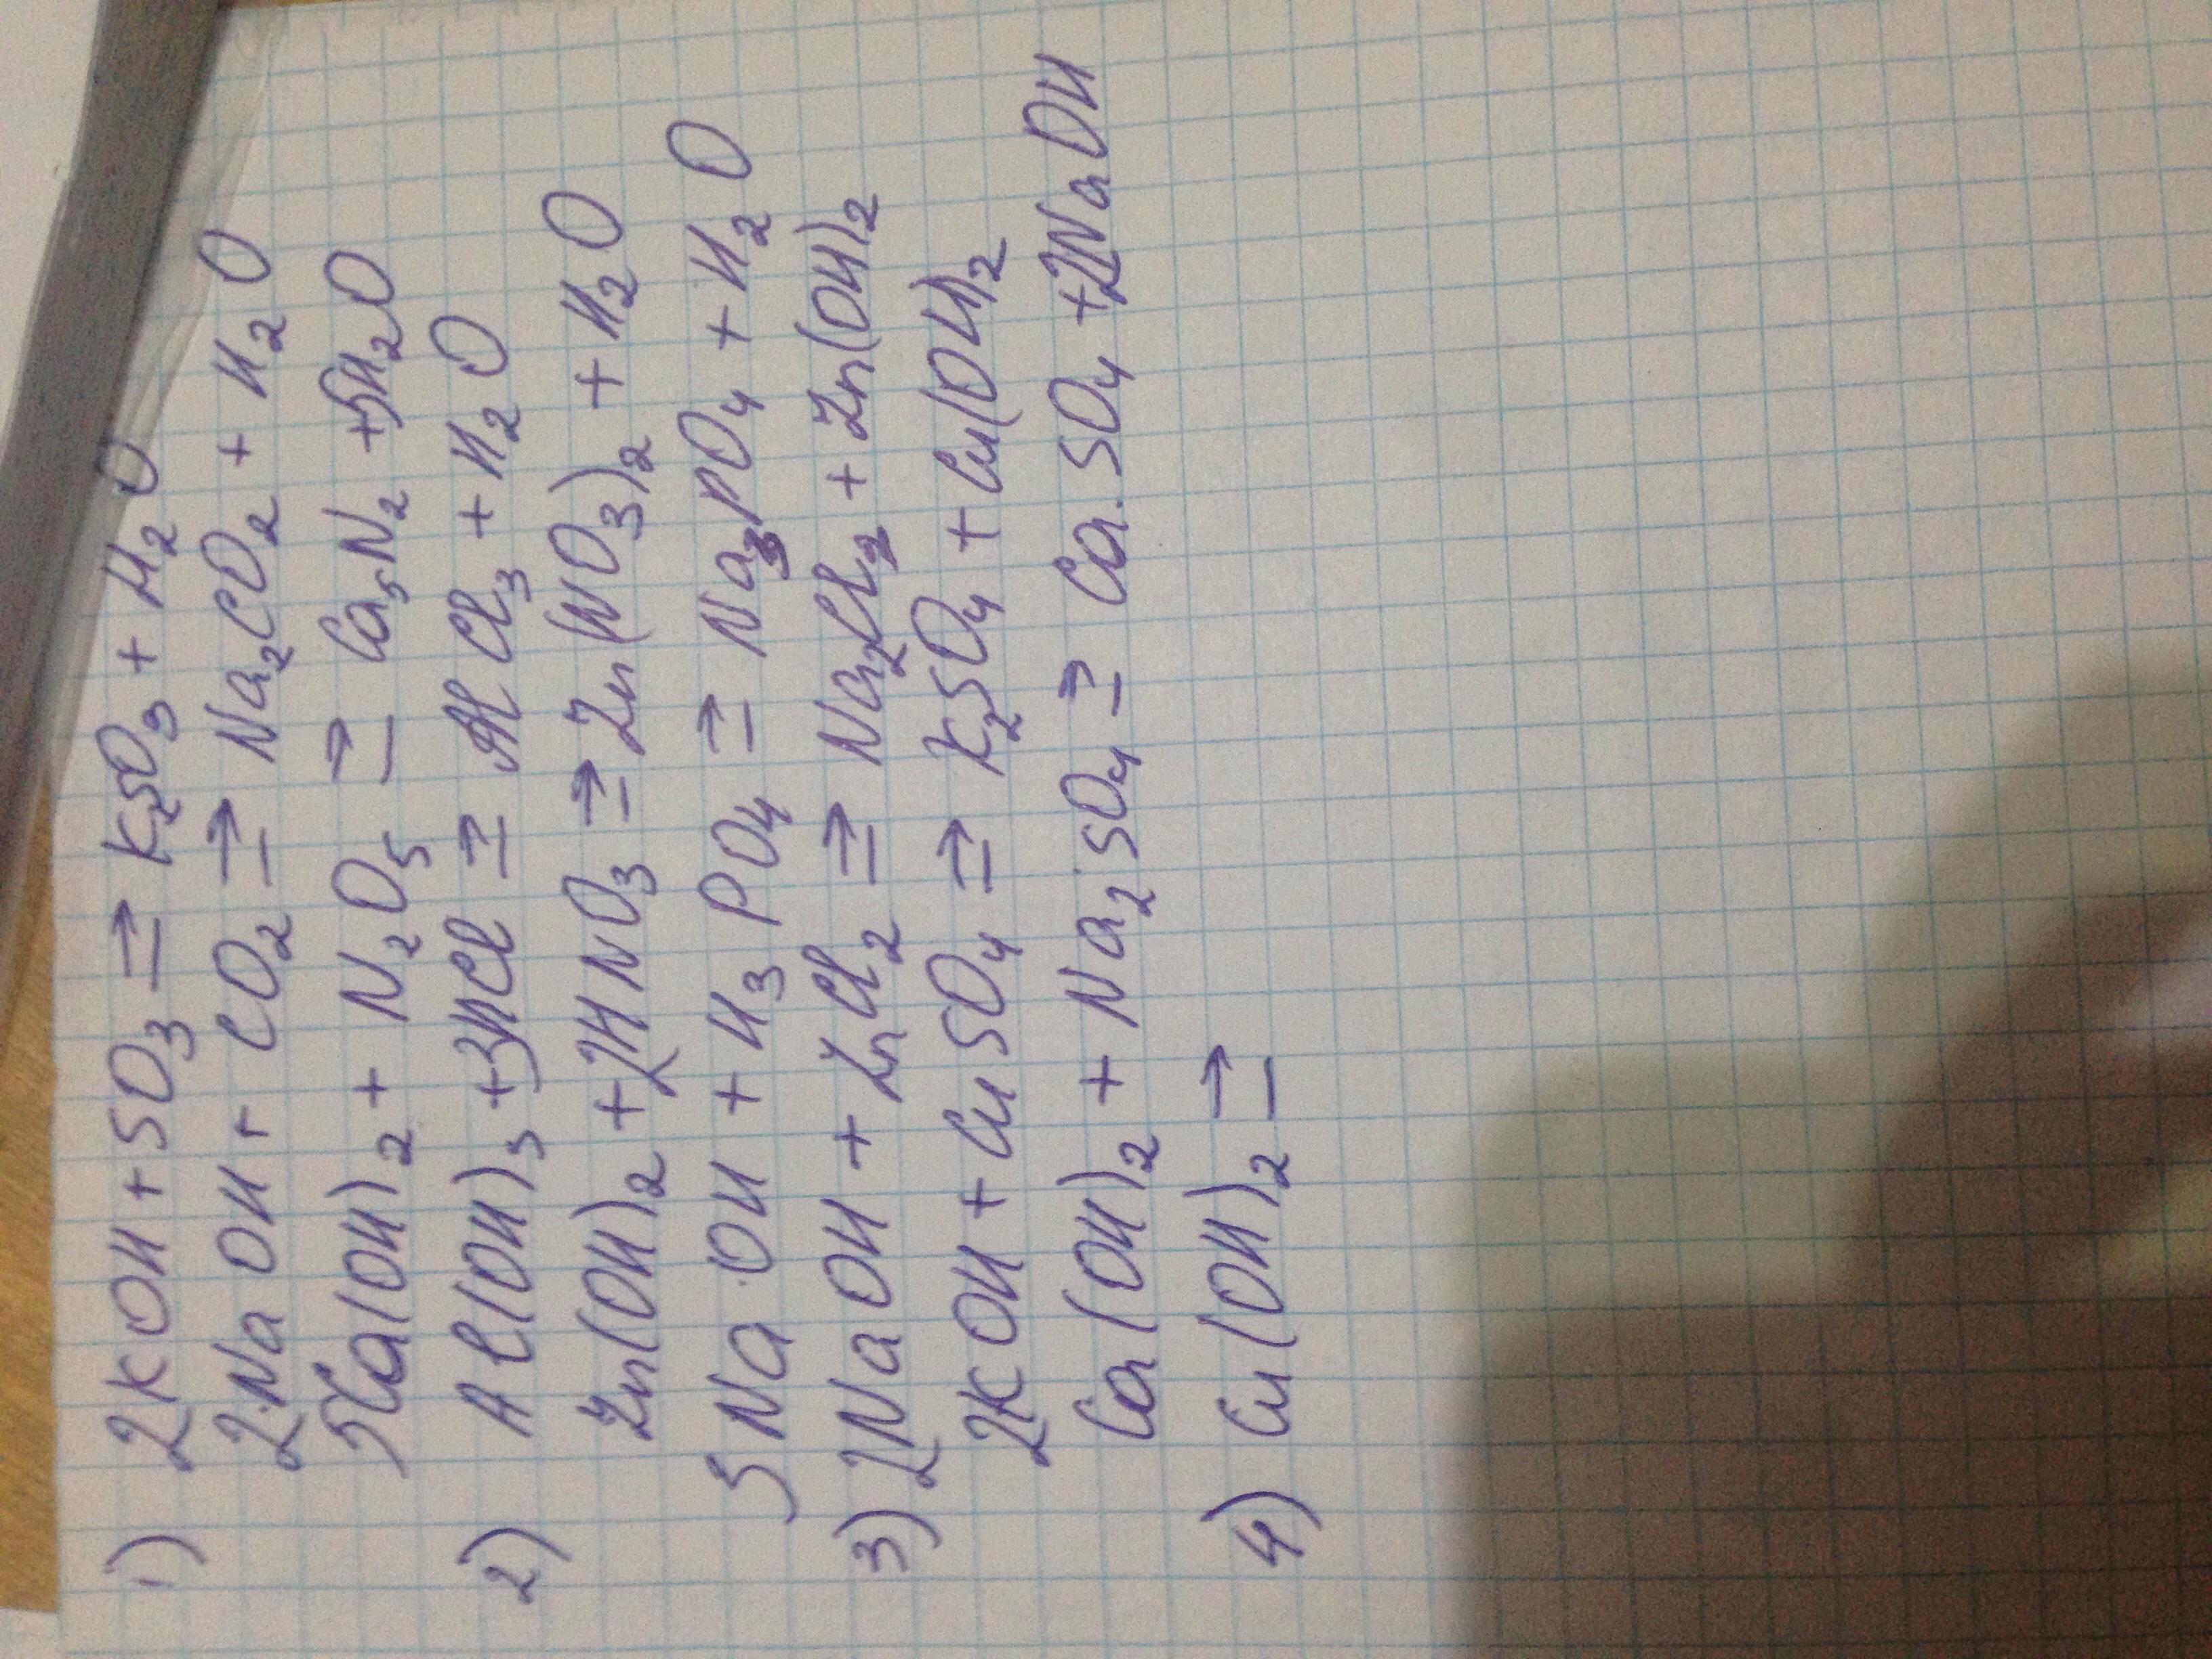 1) 2KOH + SO₃ ⇒ K₂SO₃ + H₂O
2NaOH + CO₂ ⇒ Na₂CO₂ + H₂O
5Ca(OH)₂ + N₂O₅ ⇒ Ca₅N₂ + 5H₂O
2) Al(OH)₃ + 3HCl ⇒ AlCl₃ + H₂O
Zn(OH)₂ + 2HNO₃ ⇒ Zn(NO₃)₂ + H₂O
3NaOH + H₃PO₄ ⇒ Na₃PO₄ + H₂O
3) 2NaOH + ZnCl₂ ⇒ Na₂Cl₂ + Zn(OH)₂
2KOH + CuSO₄ ⇒ K₂SO₄ + Cu(OH)₂
Ca(OH)₂ + Na₂SO₄ ⇒ CaSO₄ + 2NaOH
4) Cu(OH)₂ ⇒